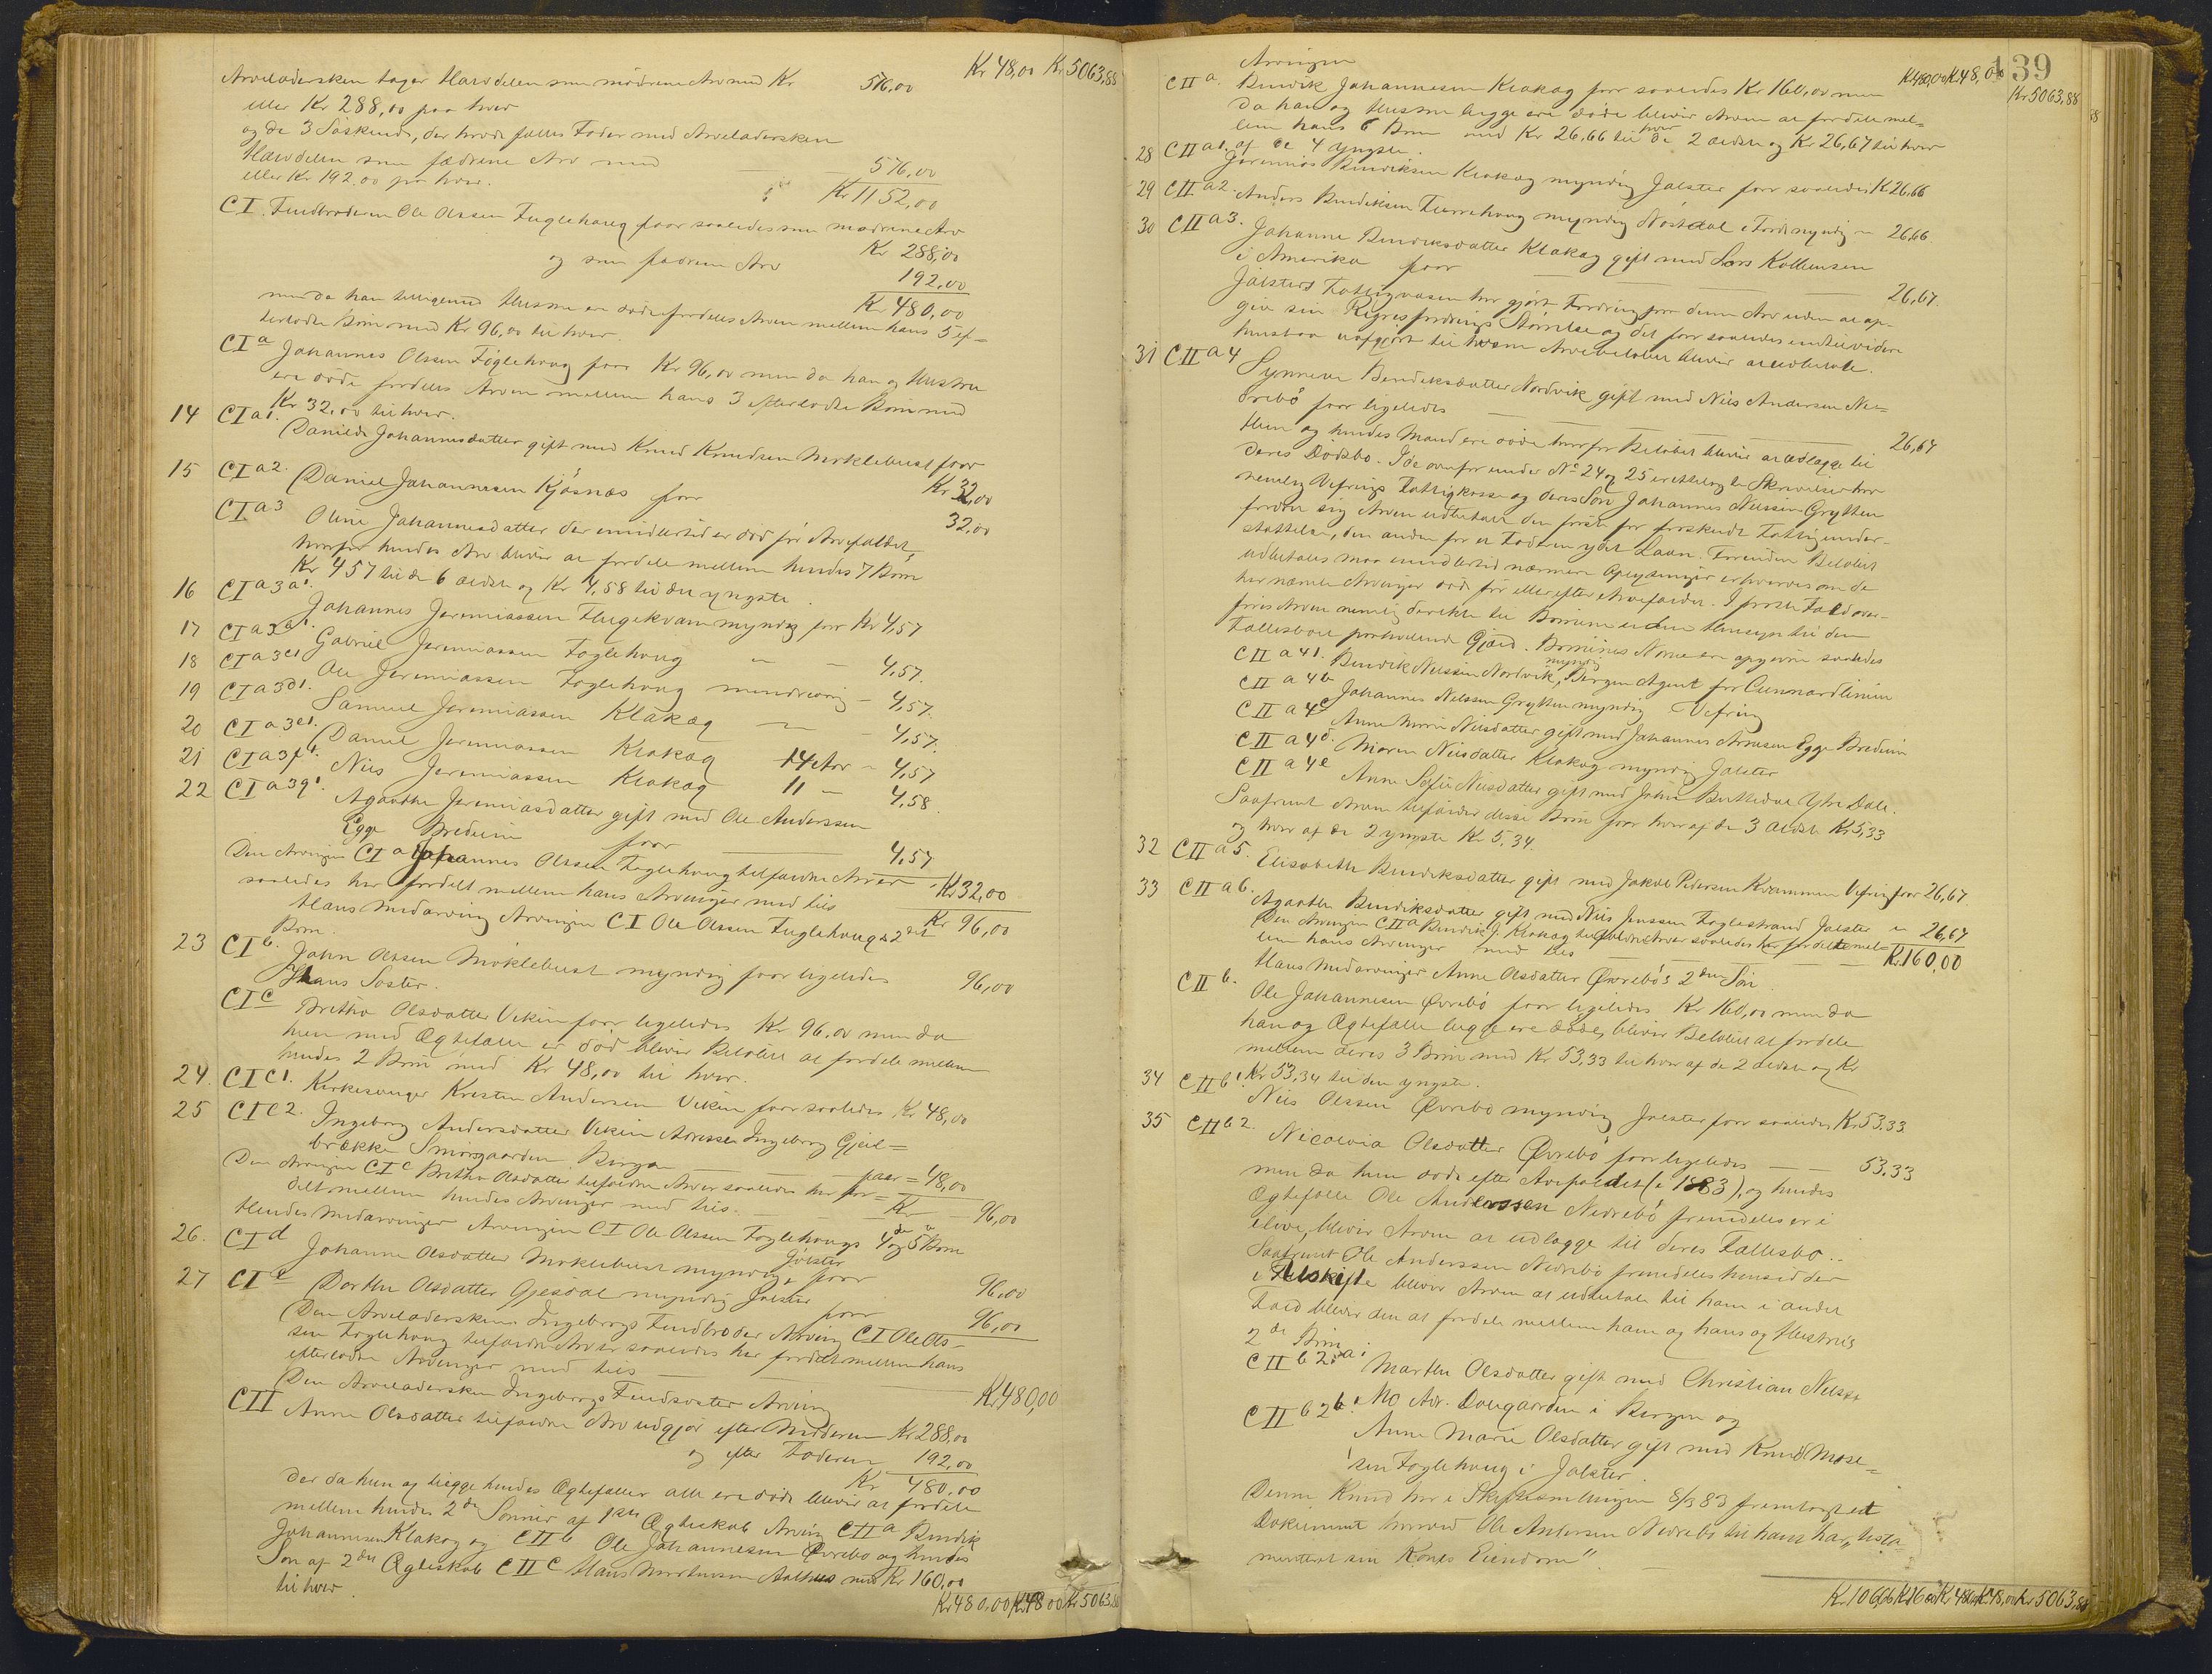 Kr 48,00 Kr 5063,88
Arveladersken tager Halvdelen som mødrene Arv med Kr 576,00
eller Kr 288,00 paa hver
og de 3 Søskende, der havde fælles Fader med Arveladersken
Halvdelen som fædrene Arv med 576,00
eller Kr 192,00 pr hver. Kr 1152,00
CI. Fuldbroderen Ole Olssen Fuglehaug faar saaledes som mødrene Arv
Kr 288,00
og som fædrene Arv 192,00
Kr 480,00
men da han tilligemed Hustru er døde fordeles Arven mellem hans 5 ef=
terladte Børn med Kr 96,00 til hver.
CIa Johannes Olssen Føglehaug faar Kr 96,00 men da han og Hustru
ere døde fordeles Arven mellem hans 3 efterladte Børn med
Kr 32,00 til hver.
14 CIa1. Danilde Johannesdatter gift med Knud Knudsen Møklebust faar
Kr 32,00
15 CIa2. Daniel Johannesen Kjøsnæs faar 32,00
CIa3 Oline Johannesdatter der imidlertid er død før Arvefaldet,
hvorfor hendes Arv bliver at fordele mellem hendes 7 Børn
Kr 4,57 til de 6 ældste og Kr 4,58 til den yngste.
16 CIa3a1. Johannes Jeremiassen Flugekvam myndig faar Kr 4,57
17 CIa3b1. Gabriel Jeremiassen Føglehaug " - 4,57.
18 CIa3c1 Ole Jeremiassen Føglehaug mindreaarig - 4,57.
19 CIa3d1. Samuel Jeremiassen Klakæg - 4,57.
20 CIa3e1. Daniel Jeremiassen Klakæg 14 Aar - 4,57
21 CIa3f1. Nils Jeremiassen Klakæg 11 - 4,58.
22 CIa3g1. Agaathe Jeremiasdatter gift med Ole Anderssen
Egge Bredeim faar 4,57
Den Arvingen CIa Johannes Olssen Føglehaug tilfaldne Arv er Kr 32,00
saaledes her fordelt mellem hans Arvinger med tils Kr 96,00
Hans Medarving Arvingen CI Ole Olssen Fuglehaugs 2det
Barn.
23 CIb. John Olssen Møklebust myndig faar ligeledes 96,00
Hans Søster.
CIc Brithe Olsdatter Viken faar ligeledes Kr 96,00 men da
hun med Ægtefælle er død bliver Beløbet at fordele mellem
hendes 2 Børn med Kr 48,00 til hver.
24. CIc1. Kirkesanger Kristen Andersen Viken faar saaledes Kr 48,00
25 CIc2. Ingeborg Andersdatter Viken Adresse Ingeborg Gjeil=
brække Smørsgaarden Bergen faar = 48,00
Den Arvingen CIc Brithe Olsdatter tilfaldne Arv er saaledes her for=
delt mellem hendes Arvinger med tils. Kr 96,00
Hendes Medarvinger Arvingen CI Ole Olssen Føglehaugs 4de og 5te Barn
26. CId Johanne Olsdatter Møklebust myndig, Jølster faar 96,00
27 CIe Dorthe Olsdatter Gjesdal myndig Jølster faar 96,00
Den Arveladersken Ingeborgs Fuldbroder Arving CI Ole Ols=
sen Føglehaug tilfaldne Arv er saaledes her fordelt mellem hans
efterladte Arvinger med tils Kr 480,00
Den Arveladersken Ingeborgs Fuldsøster Arving
CII Anne Olsdatter tilfaldne Arv udgjør efter Moderen Kr 288,00
og efter Faderen 192,00
Kr 480,00
der da hun og begge hendes Ægtefæller alle ere døde bliver at fordele
mellem hendes 2de Sønner af 1ste Ægteskab Arving CIIa Bendik
Johannesen Klakæg og CIIb Ole Johannesen Øvrebø og hendes
Søn af 2det Ægteskab CIIc Hans Mortensen Aalhus med Kr 160,00
til hver
Kr 480,00 Kr 48,00 Kr 5063,88
139
Kr 480,00 Kr 48,00 Kr 5063,88
Arvingen
CIIa. Bendik Johannesen Klakæg faar saaledes Kr 160,00 men
da han og Hustru begge ere døde bliver Arven at fordele mel=
lem hans 6 Børn med Kr 26,66 til hver de 2 ældste og Kr 26,67 til hver
af de 4 yngste.
28 CIIa1. Jeremias Bendiksen Klakæg myndig Jølster faar saaledes Kr 26,66
29 CIIa2. Anders Bendiksen myndig i Førde myndig " 26,66.
30 CIIa3. Johanne Bendiksdatter Klakæg gift med Lars Kollemsen
i Amerika faar 26,67.
Jølsters Fattigvæsen har gjort Fordring paa denne Arv uden at op=
give sin Regresfordrings Størrelse og det faar saaledes indtilvidere
henstaa uafgjort til hvem Arvebeløbet bliver at udbetale.
31 CIIa4 Synneve Bendiksdatter Nordvik gift med Nils Andersen Ne=
drebø faar ligeledes 26,67
Hun og hendes Mand ere døde hvorfor Beløbet bliver at udlægge til
deres Dødsbo. I de ovenfor under No 24 og 25 Skrivelser har
nemlig Vefrings Fattigkasse og deres Søn Johannes Nilssen Grytten
fordret sig Arven udbetalt den første for forskudt Fattigunder=
støttelse, den anden for et Faderen ydet Laan. Forinden Beløbet
udbetales maa imidlertid nærmere Oplysninger erhverves om de
her nævnte Arvinger døde før eller efter Arvefaldet. I første Fald over=
føres Arven nemlig direkte til Børnene uden Hensyn til den
Fællesboet paahvilende Gjæld. Børnenes Navne ere opgivne saaledes
CIIa41. Bendik Nilssen Nordvik, myndig Bergen Agent for Cunnardlinien
CIIa4b Johannes Nilssen Grytten myndig Vefring
CIIa4c Anne Marie Nilsdatter gift med Johannes Arnesen Egge Bredeim
CIIa4d. Maren Nilsdatter Klakæg myndig Jølster
CIIa4e Anne Sofie Nilsdatter gift med John Ytre Dale.
Saafremt Arven tilfalder disse Børn faar hver af de 3 ældste Kr 5,33
og hver af de 2 yngste Kr 5,34.
32 CIIa5. Elisabeth Bendiksdatter gift med Jakob Pedersen Kvammen Vefring faar 26,67.
33 CIIa6. Agaathe Bendiksdatter gift med Nils Jenssen Foglestrand Jølster " 26,67
Den Arvingen CIIa Bendik J. Klakæg tilfaldne Arv er saaledes her fordelt mel=
lem hans Arvinger med tils Kr. 160,00
Hans Medarvinger Anne Olsdatter Øvrebø's 2den Søn.
CIIb. Ole Johannesen Øvrebø faar ligeledes Kr 160,00 men da
han og Ægtefælle begge ere døde, bliver Beløbet at fordele
mellem deres 3 Børn med Kr 53,33 til hver af de 2 ældste og Kr
Kr 53,34 til den yngste.
34 CIIb1. Nils Olssen Øvrebø myndig Jølster faar saaledes Kr 53,33
35 CIIb2. Nicolvia Olsdatter Øvrebø faar ligeledes 53,33
men da hun døde efter Arvefaldet (i 1883), og hendes
Ægtefælle Ole Anderssen Nedrebø fremdeles er i
elive, bliver Arven at udlægge til deres Fællesbo..
Saafremt Ole Anderssen Nedrebø fremdeles hensidder
i uskifte bliver Arven at udbetale til ham i andet
Fald bliver den at fordele mellem ham og hans og Hustrus
2de Børn
CIIb2a: Marthe Olsdatter gift med Christian Nilssen
Mo Adr. Dovgaarden i Bergen og
CIIb2b. Anne Marie Olsdatter gift med Knud Mose=
sen Foglehaug i Jølster.
Denne Knud har i Skiftesamlingen 8/3 83 fremlagt et
Dokument hvorved Ole Andersen Nedrebø til ham har „testa=
menteret sin Kones Eiendom".
Kr. 106,66 Kr 160,00 Kr 480,00 Kr 48,00 Kr 5063,88